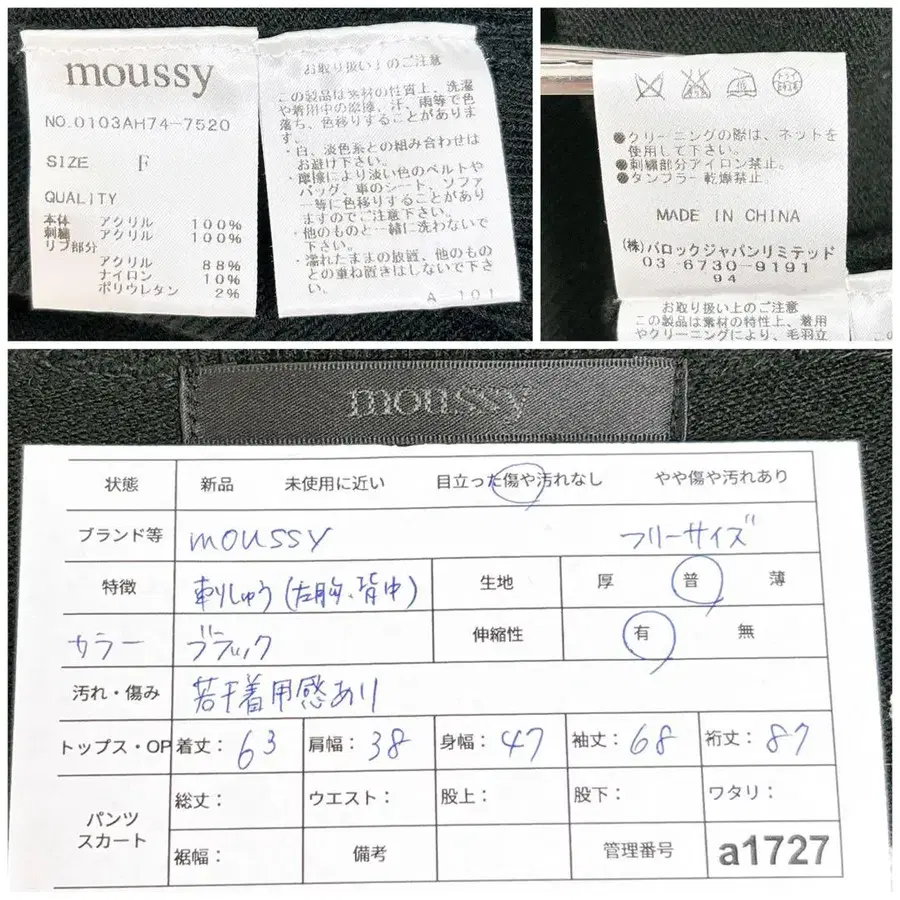 moussy
NO.0103AH74-7520
SIZE F
QUALITY
本体 アクリル 100%
刺繍 アクリル 100%
リブ部分
アクリル 88%
ナイロン 10%
ポリウレタン 2%
お取り扱い上のご注意
この製品は素材の性質上、洗濯
や着用中の摩擦、汗、雨等で色
落ち、色移りすることがありま
す。
・白、淡色系との組み合わせは
お避け下さい。
・摩擦により淡い色のベルトや
バッグ、車のシート、ソファ
ー等に色移りすることがあり
ますのでご注意下さい。
・他のものと一緒に洗わないで
下さい。
・濡れたままの放置、他のもの
との重ね置きはしないで下さ
い。
A 101
ドライ
●クリーニングの際は、ネットを
使用して下さい。
●刺繍部分アイロン禁止。
●タンブラー乾燥禁止。
MADE IN CHINA
(株)バロックジャパンリミテッド
03-6730-9191
94
お取り扱い上のご注意
この製品は素材の特性上、着用
やクリーニングにより、毛羽立
moussy
状態 新品 未使用に近い 目立った傷や汚れなし やや傷や汚れあり
ブランド等 moussy フリーサイズ
特徴 刺しゅう(左胸、背中) 生地 厚 普 薄
カラー ブラック 伸縮性 有 無
汚れ・傷み 若干着用感あり
トップス・OP 着丈：63 肩幅：38 身幅：47 袖丈：68 裄丈：87
パンツ
スカート
総丈： ウエスト： 股上： 股下： ワタリ：
裾幅： 備考 管理番号 a1727